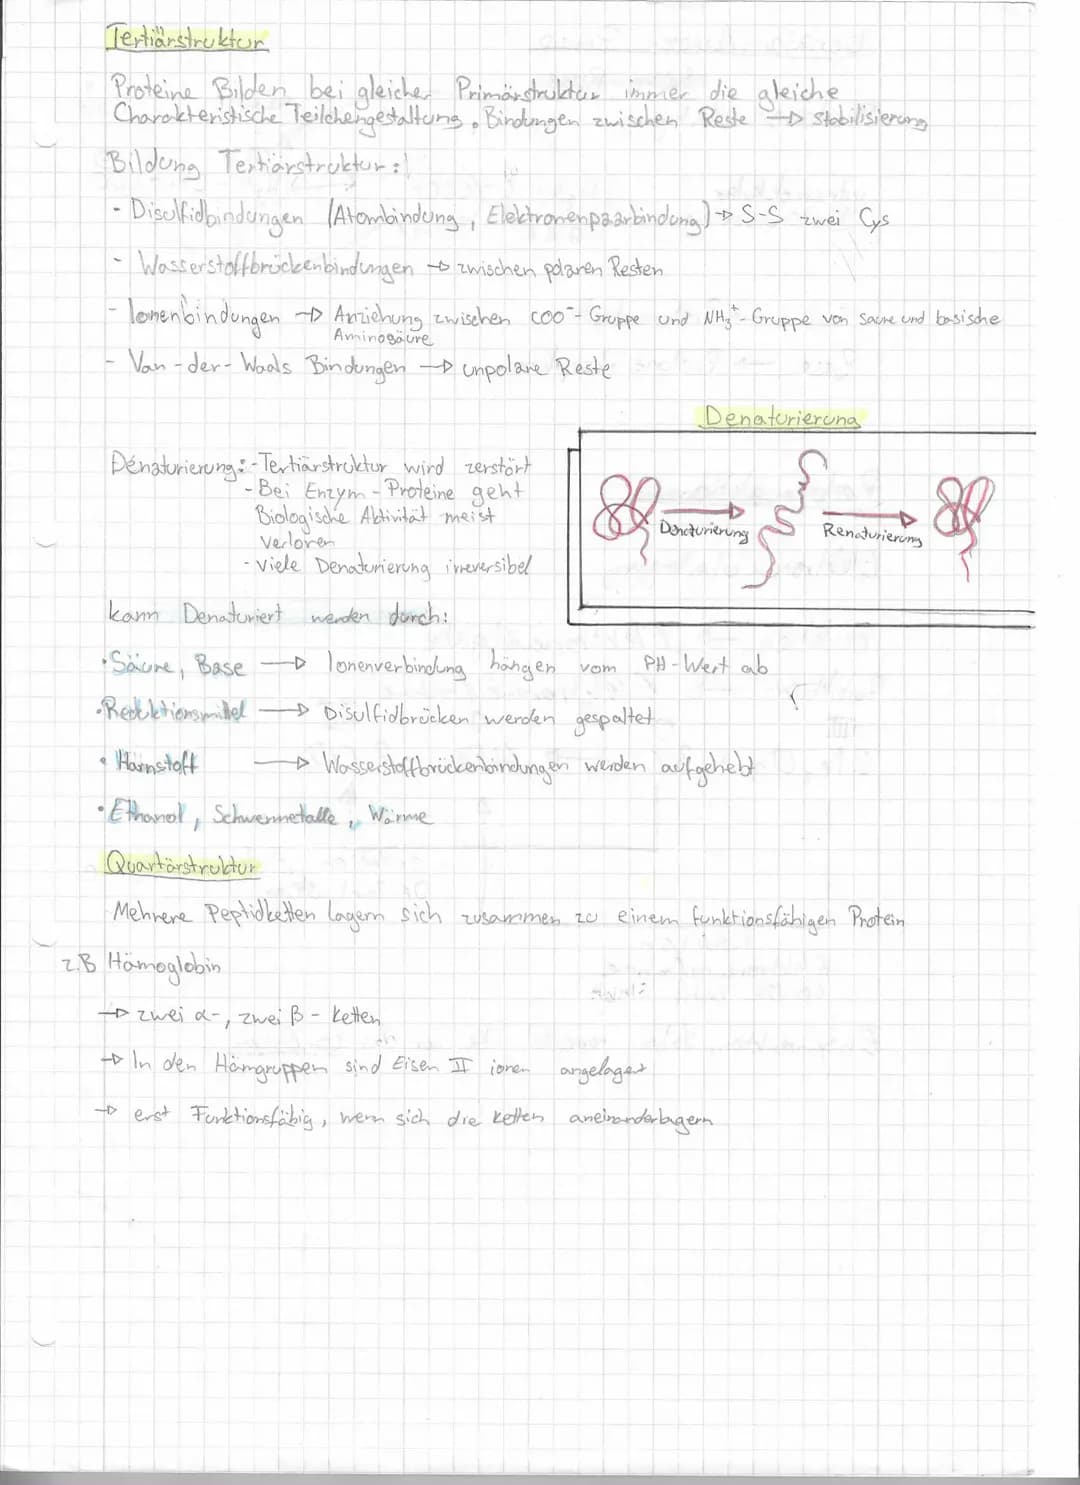 Tertiärstruktur
Proteine Bilden bei gleicher Primärstruktur immer die gleiche
Charakteristische Teilchengestaltung. Bindungen zwischen Reste → Stabilisierung
Bildung Tertiärstruktur:
- Disulfidbindungen (Atombindung, Elektronenpaarbindung) → S-S zwei Cys
- Wasserstoffbrückenbindungen → zwischen polaren Resten
- Ionenbindungen → Anziehung zwischen COO⁻- Gruppe und NH₃⁺- Gruppe von saure und basische
Aminosäure
- Van-der-Waals Bindungen → unpolare Reste
Denaturierung
Denaturierung: - Tertiärstruktur wird zerstört
- Bei Enzym-Proteine geht
Biologische Aktivität meist
verloren
- viele Denaturierung irreversibel
Denaturierung
Renaturierung
kann Denaturiert werden durch:
• Säure, Base → Ionenverbindung hängen vom PH-Wert ab
• Reduktionsmittel → Disulfidbrücken werden gespaltet
• Harnstoff → Wasserstoffbrückenbindungen werden aufgehebt
• Ethanol, Schwermetalle, Wärme
Quartärstruktur
Mehrere Peptidketten lagern sich zusammen zu einem funktionsfähigen Protein
z.B Hämoglobin
→ zwei α-, zwei β- Ketten
→ In den Hämgruppen sind Eisen II ionen angelagert
→ erst Funktionsfähig, wenn sich die Ketten aneinanderlagern